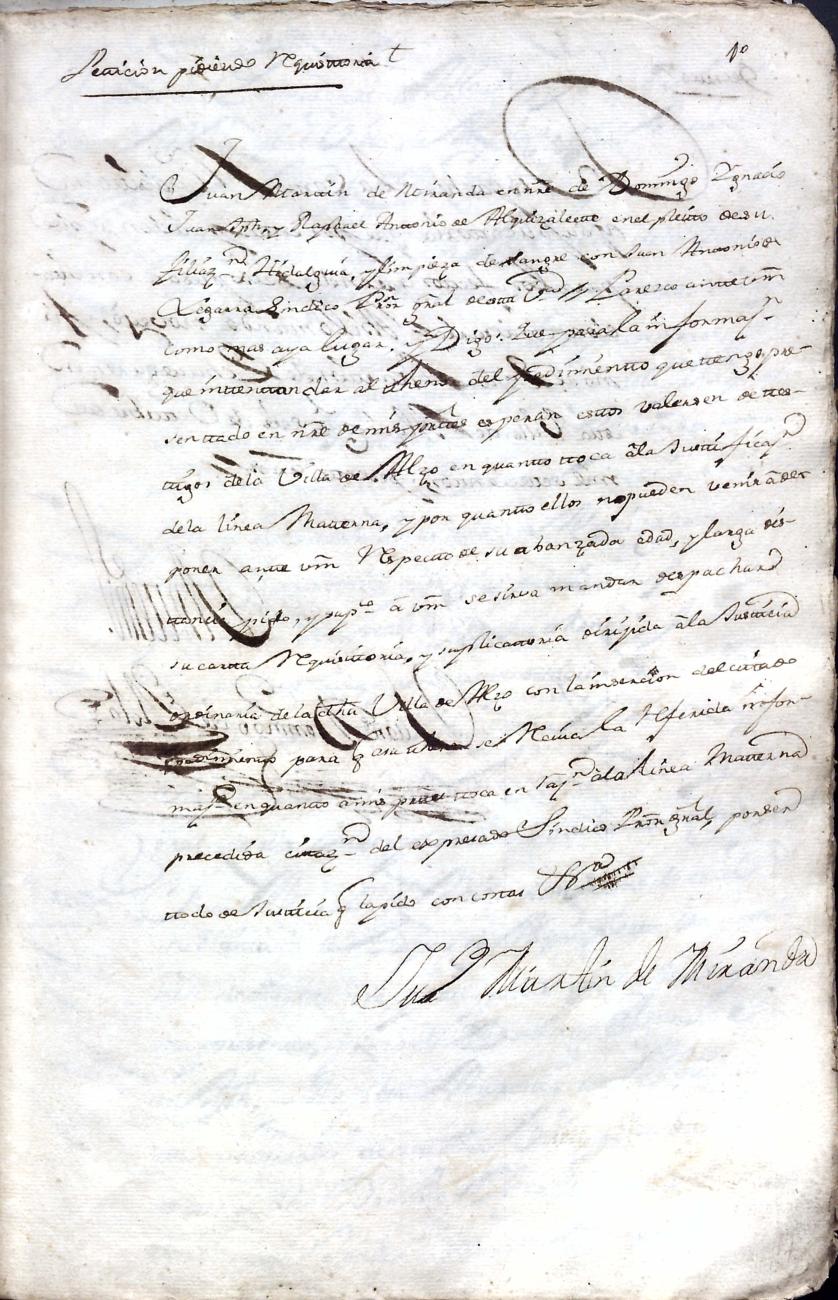 Petticion pidiendo Requisittoria t
1º
Juan Martin de Miranda en nre de Domingo Ygnacio
Juan Jph, y Raphael Antonio de Alquizalette en el pleito de su
filiaz.on Hidalguia, y limpieza de Sangre con Juan Antonio de
Legarra Sindico Prôr gñal de esta Vniv.d Parezco ante vm
como mas aya lugar, y Digo. Que para la informaz.n
que intentan dar al thenor del pedimiento que ttengo pre-
senttado en nre de mis parttes esperan esttos valersen de ttes-
tigos de la Villa de Alzo en quantto ttoca â la Justtificaz.n
de la linea Matterna, y por quantto ellos no pueden venir â de-
poner ante vm Respecto de su abanzada edad, y larga dis-
ttancia pido, y supp.co â vm se sirva mandar despachar
su cartta Requisittoria, y suplicattoria dirijida â la Justicia
ordinaria de la dha Villa de Alzo con la insercion del cittado
pedimiento para q̃ a su thenor se Reciva la Referida infor-
maz.n en quantto a mis parttes ttoca en raz.n â la linea Matterna
precedida cittaz.on del expresado Sindico Prôr gñal, por ser
ttodo de Justicia q̃ la pido con costtas &.a
Ju.n Martin de Miranda